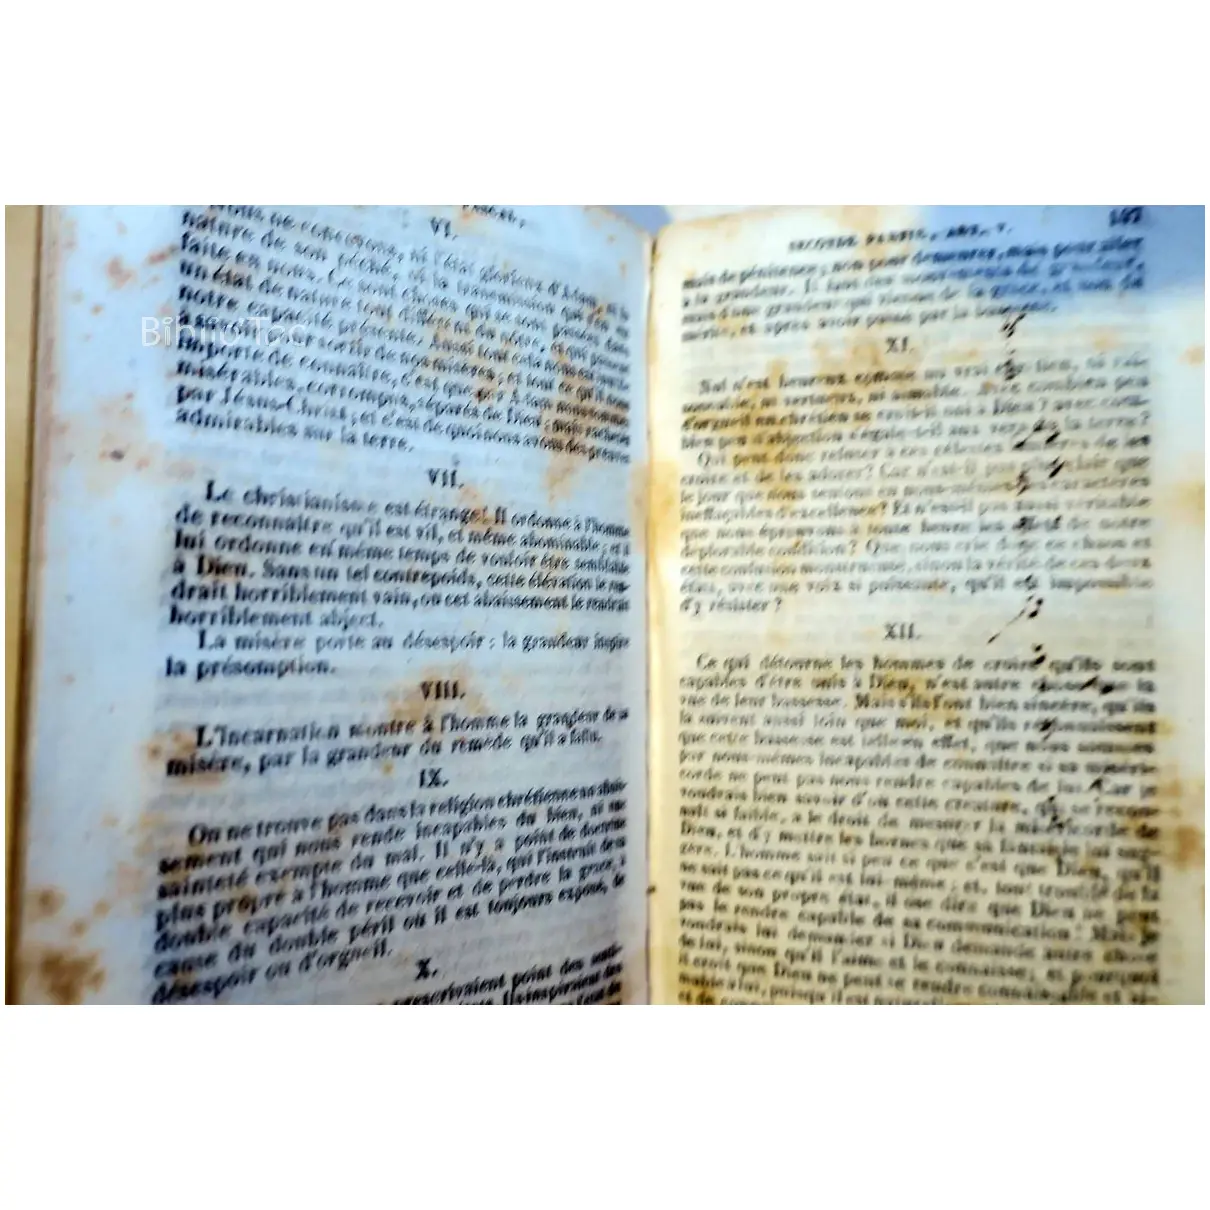 PASCAL,
VI.
nous ne concevons, ni l'état glorieux d'Adam, ni la
nature de son péché, ni la transmission qui s'en est
faite en nous. Ce sont choses qui se sont passées dans
un état de nature tout différent du nôtre, et qui passent
notre capacité présente. Aussi tout cela nous est inutile
à savoir pour sortir de nos misères; et tout ce qu'il nous
importe de connaître, c'est que par Adam nous sommes
misérables, corrompus, séparés de Dieu; mais rachetés
par Jésus-Christ; et c'est de quoi nous avons des preuves
admirables sur la terre.
VII.
Le christianisme est étrange! Il ordonne à l'homme
de reconnaître qu'il est vil, et même abominable; et il
lui ordonne en même temps de vouloir être semblable
à Dieu. Sans un tel contrepoids, cette élévation le ren-
drait horriblement vain, ou cet abaissement le rendrait
horriblement abject.
La misère porte au désespoir: la grandeur inspire
la présomption.
VIII.
L'Incarnation montre à l'homme la grandeur de sa
misère, par la grandeur du remède qu'il a fallu.
IX.
On ne trouve pas dans la religion chrétienne un abais-
sement qui nous rende incapables du bien, ni une
sainteté exempte du mal. Il n'y a point de doctrine
plus propre à l'homme que celle-là, qui l'instruit de sa
double capacité de recevoir et de perdre la grace, à
cause du double péril où il est toujours exposé, de
désespoir ou d'orgueil.
X.
prescrivaient point des senti-
Ils inspiraient des
SECONDE PARTIE, ART. V. 167
mais de pénitence; non pour demeurer, mais pour aller
à la grandeur. Il faut des mouvements de grandeur,
mais d'une grandeur qui vienne de la grace, et non du
mérite, et après avoir passé par la bassesse.
XI.
Nul n'est heureux comme un vrai chrétien, ni rai-
sonnable, ni vertueux, ni aimable. Avec combien peu
d'orgueil un chrétien se croit-il uni à Dieu? avec com-
bien peu d'abjection s'égale-t-il aux vers de la terre?
Qui peut donc refuser à ces célestes lumières de les
croire et de les adorer? Car n'est-il pas plus clair que
le jour que nous sentons en nous-mêmes des caractères
ineffaçables d'excellence? Et n'est-il pas aussi véritable
que nous éprouvons à toute heure les effets de notre
déplorable condition? Que nous crie donc ce chaos et
cette confusion monstrueuse, sinon la vérité de ces deux
états, avec une voix si puissante, qu'il est impossible
d'y résister?
XII.
Ce qui détourne les hommes de croire qu'ils sont
capables d'être unis à Dieu, n'est autre chose que la
vue de leur bassesse. Mais s'ils l'ont bien sincère, qu'ils
la suivent aussi loin que moi, et qu'ils reconnaissent
que cette bassesse est telle en effet, que nous sommes
par nous-mêmes incapables de connaître si sa miséri-
corde ne peut pas nous rendre capables de lui. Car je
voudrais bien savoir d'où cette créature, qui se recon-
naît si faible, a le droit de mesurer la miséricorde de
Dieu, et d'y mettre les bornes que sa fantaisie lui sug-
gère. L'homme sait si peu ce que c'est que Dieu, qu'il
ne sait pas ce qu'il est lui-même; et, tout troublé de la
vue de son propre état, il ose dire que Dieu ne peut
pas le rendre capable de sa communication! Mais je
voudrais lui demander si Dieu demande autre chose
de lui, sinon qu'il l'aime et le connaisse; et pourquoi
il croit que Dieu ne peut se rendre connaissable et ai-
mable à lui, puisqu'il est naturellement
BiblioTac